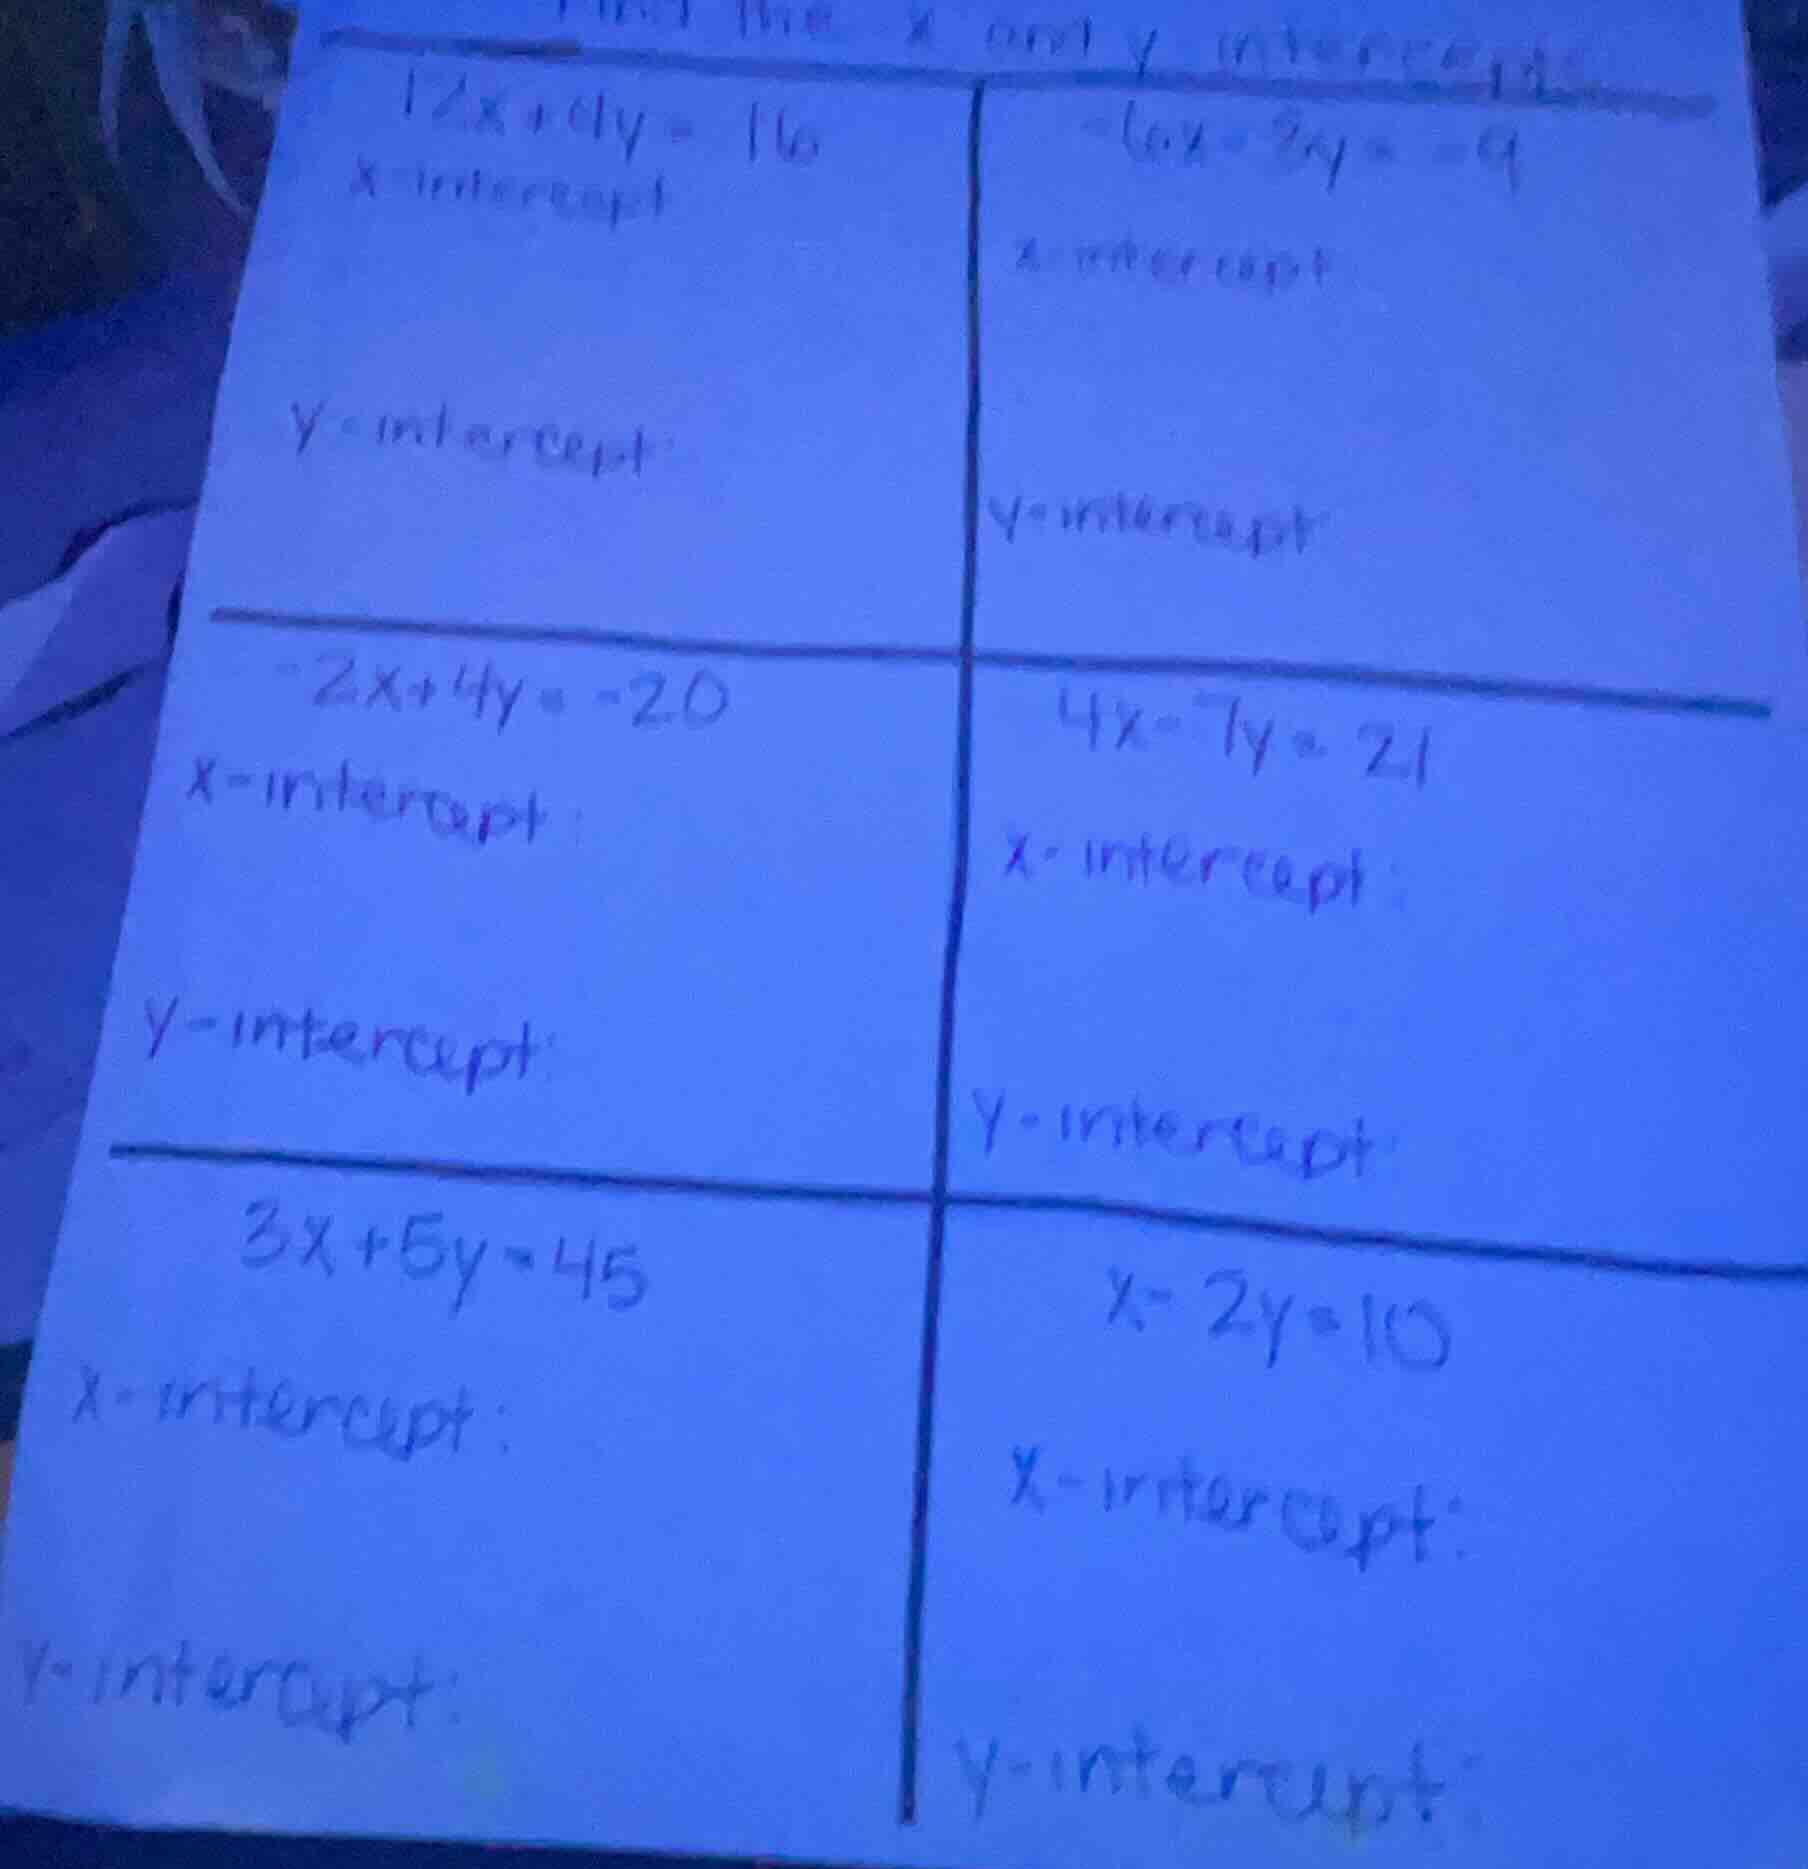 Find the x and y intercepts
12x+4y= 16
x intercept
y-intercept:
-6x-3y= -9
x-intercept
y-intercept
-2x+4y= -20
x-intercept:
y-intercept:
4x-7y= 21
x-intercept:
y-intercept
3x+5y=45
x-intercept:
y-intercept:
x-2y=10
x-intercept:
y-intercept: